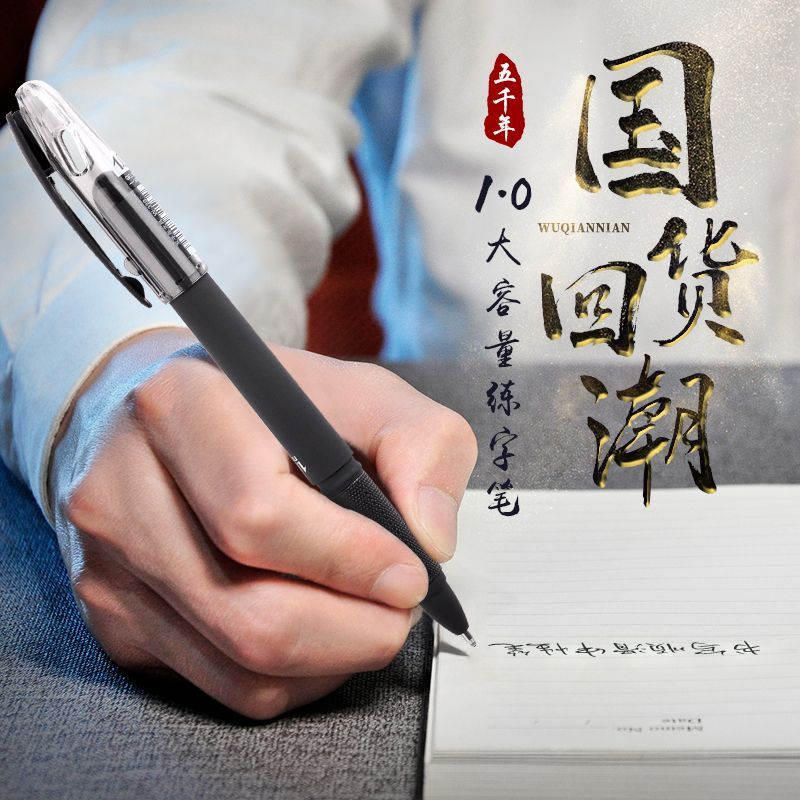 五千年
国货
回潮
WUQIANNIAN
1.0
大容量练字笔
书写顺滑中性笔
Memo No.
Date